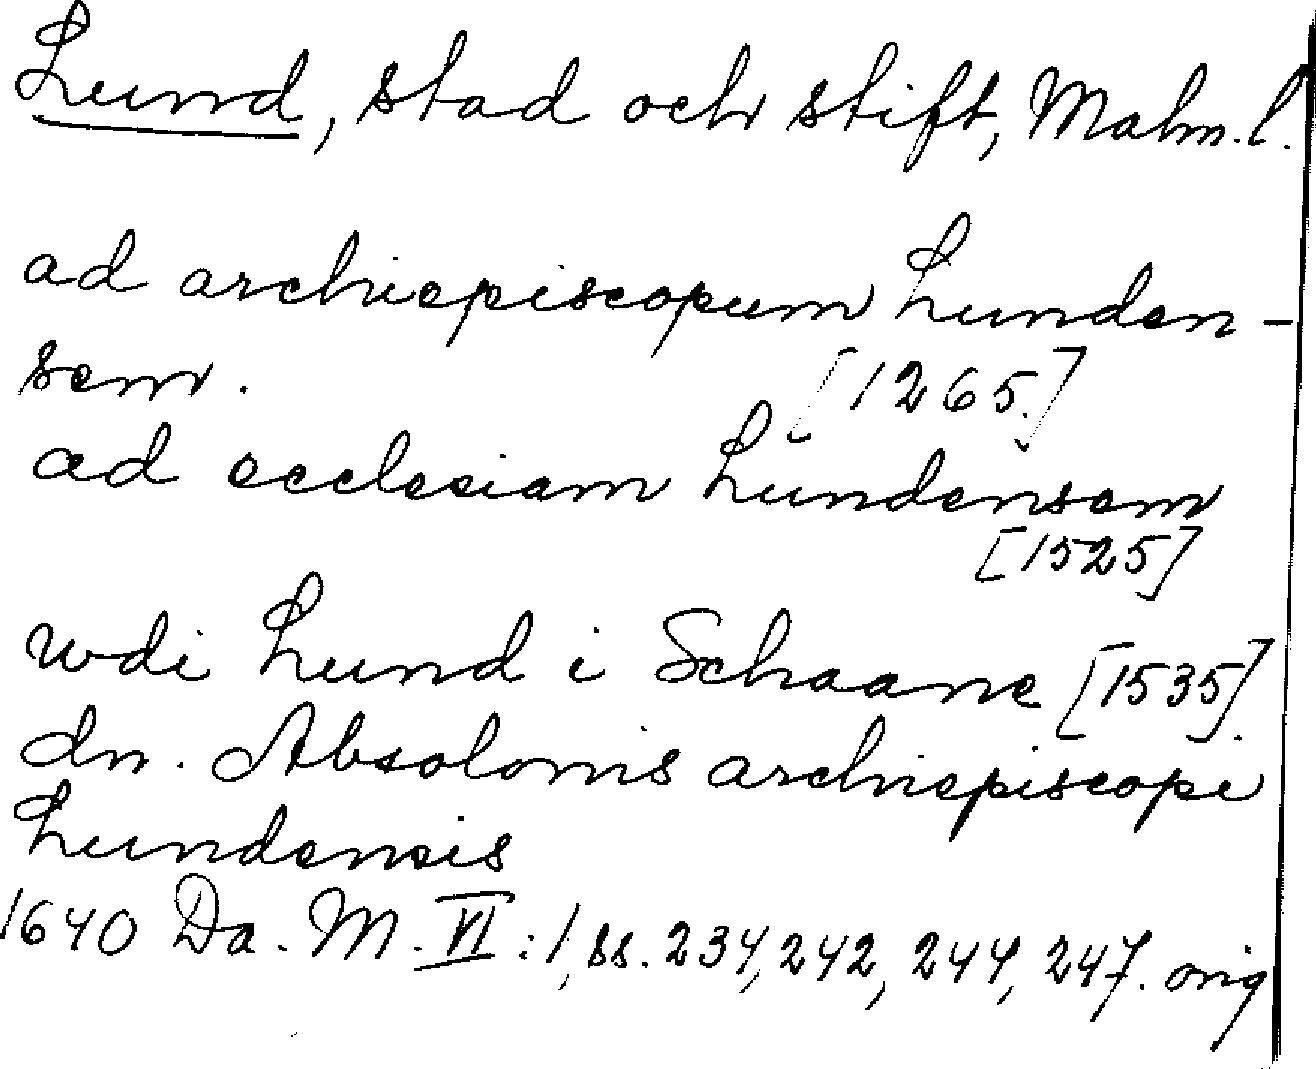 Lund, stad och stift, Malm.l.
ad archiepiscopum Lunden-
sem. [1265.]
ad ecclesiam Lundensem
[1525]
wdi Lund i Schaane [1535].
dn. Absolonis archiepiscopi
Lundensis
1640 Da. M. VI:1, ss. 234, 242, 244, 247. orig